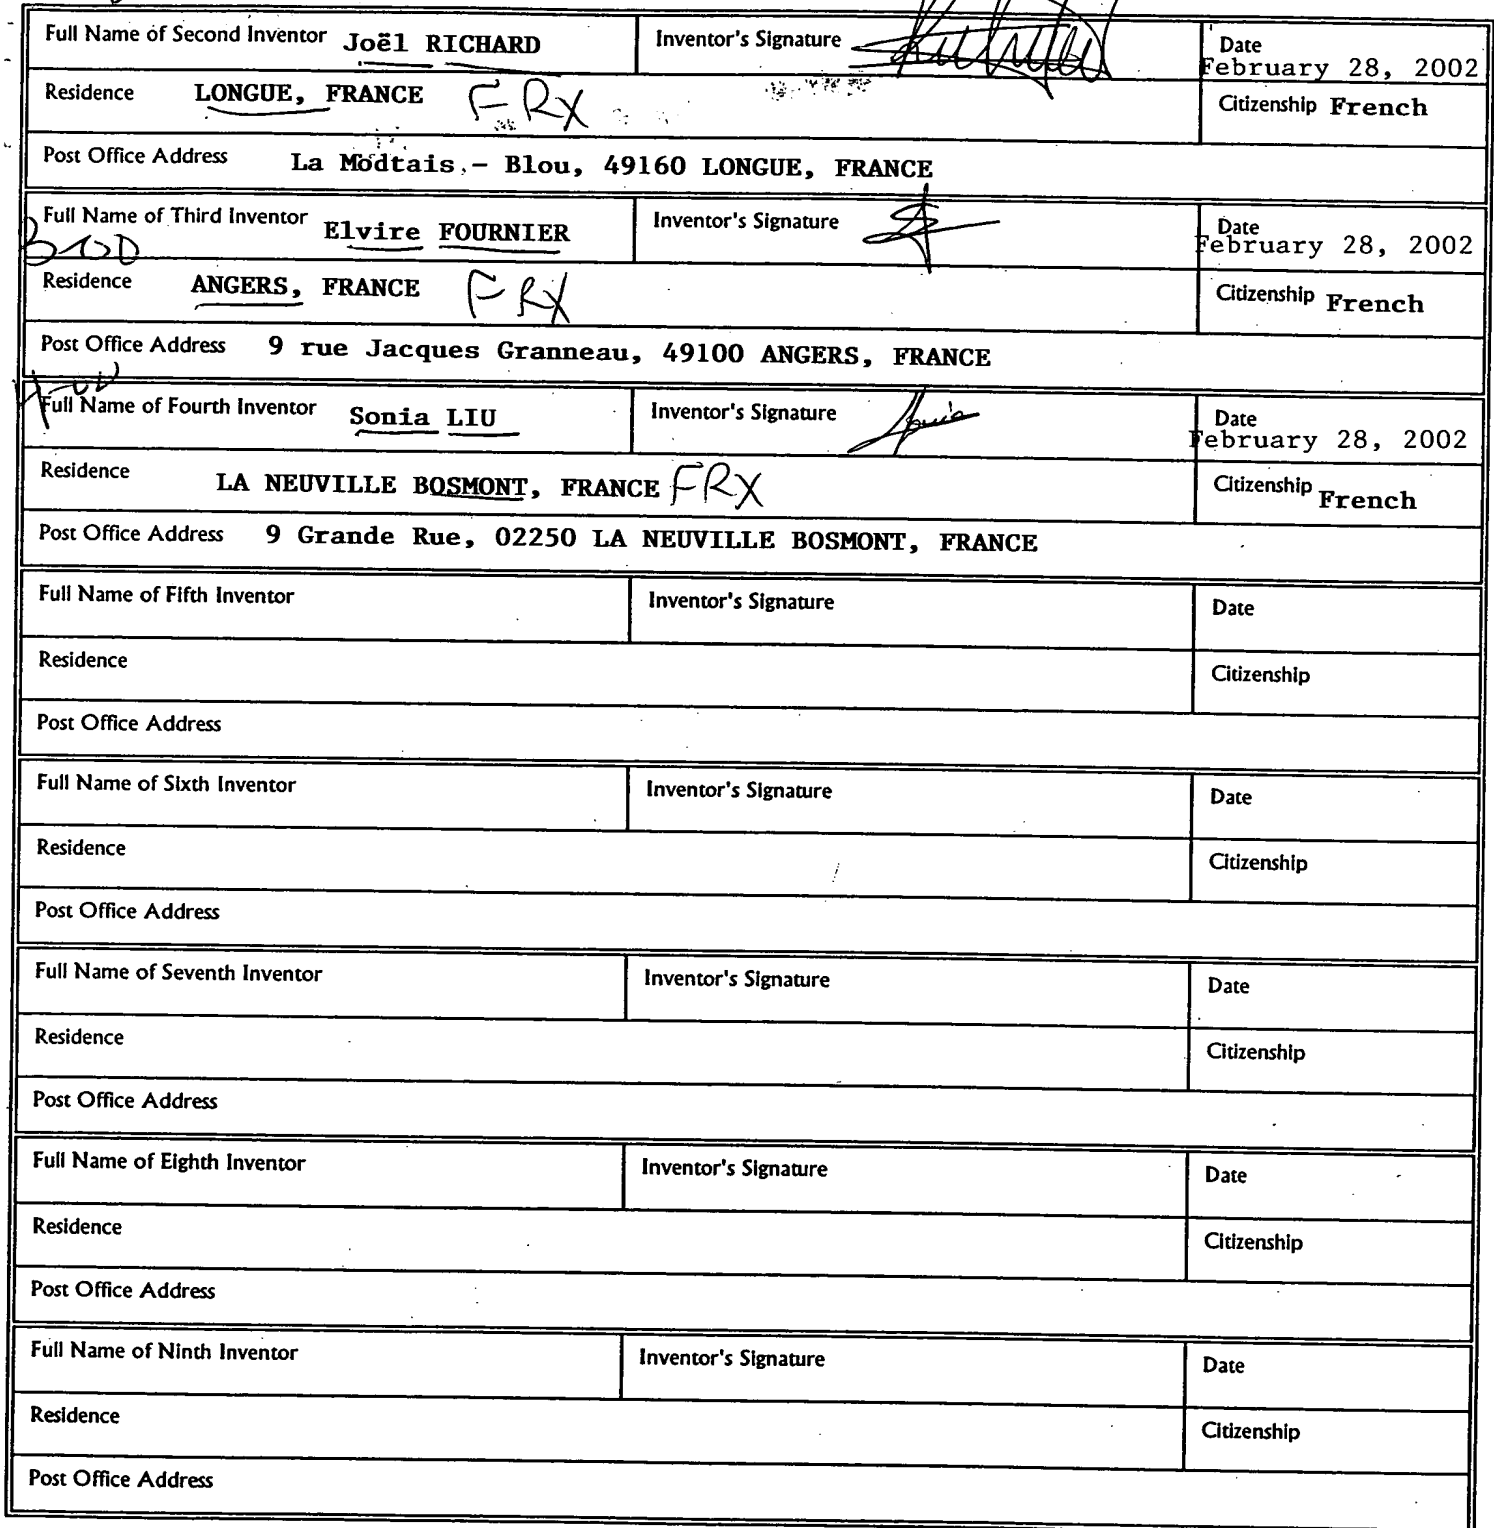 Full Name of Second Inventor Joël RICHARD Inventor's Signature Date February 28, 2002
Residence LONGUE, FRANCE FRX Citizenship French
Post Office Address La Modtais - Blou, 49160 LONGUE, FRANCE
Full Name of Third Inventor Elvire FOURNIER Inventor's Signature Date February 28, 2002
Residence ANGERS, FRANCE FRX Citizenship French
Post Office Address 9 rue Jacques Granneau, 49100 ANGERS, FRANCE
Full Name of Fourth Inventor Sonia LIU Inventor's Signature Date February 28, 2002
Residence LA NEUVILLE BOSMONT, FRANCE FRX Citizenship French
Post Office Address 9 Grande Rue, 02250 LA NEUVILLE BOSMONT, FRANCE
Full Name of Fifth Inventor Inventor's Signature Date
Residence Citizenship
Post Office Address
Full Name of Sixth Inventor Inventor's Signature Date
Residence Citizenship
Post Office Address
Full Name of Seventh Inventor Inventor's Signature Date
Residence Citizenship
Post Office Address
Full Name of Eighth Inventor Inventor's Signature Date
Residence Citizenship
Post Office Address
Full Name of Ninth Inventor Inventor's Signature Date
Residence Citizenship
Post Office Address